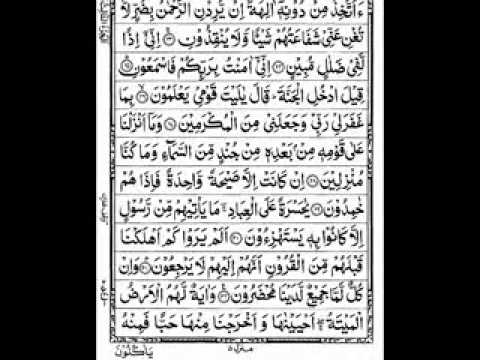 ءَاَتَّخِذُ مِنْ دُوْنِهٖۤ اٰلِهَةً اِنْ يُّرِدْنِ الرَّحْمٰنُ بِضُرٍّ لَّا
تُغْنِ عَنِّيْ شَفَاعَتُهُمْ شَيْـًٔا وَّلَا يُنْقِذُوْنِ ۚ اِنِّيْۤ اِذًا
لَّفِيْ ضَلٰلٍ مُّبِيْنٍ ۝ اِنِّيْۤ اٰمَنْتُ بِرَبِّكُمْ فَاسْمَعُوْنِ ۝
قِيْلَ ادْخُلِ الْجَنَّةَ ؕ قَالَ يٰلَيْتَ قَوْمِيْ يَعْلَمُوْنَ ۝ بِمَا
غَفَرَلِيْ رَبِّيْ وَجَعَلَنِيْ مِنَ الْمُكْرَمِيْنَ ۝ وَمَاۤ اَنْزَلْنَا
عَلٰى قَوْمِهٖ مِنْۢ بَعْدِهٖ مِنْ جُنْدٍ مِّنَ السَّمَآءِ وَمَا كُنَّا
مُنْزِلِيْنَ ۝ اِنْ كَانَتْ اِلَّا صَيْحَةً وَّاحِدَةً فَاِذَا هُمْ
خٰمِدُوْنَ ۝ يٰحَسْرَةً عَلَى الْعِبَادِ ۚ مَا يَاْتِيْهِمْ مِّنْ رَّسُوْلٍ
اِلَّا كَانُوْا بِهٖ يَسْتَهْزِءُوْنَ ۝ اَلَمْ يَرَوْا كَمْ اَهْلَكْنَا
قَبْلَهُمْ مِّنَ الْقُرُوْنِ اَنَّهُمْ اِلَيْهِمْ لَا يَرْجِعُوْنَ ۝ وَاِنْ
كُلٌّ لَّمَّا جَمِيْعٌ لَّدَيْنَا مُحْضَرُوْنَ ۝ وَاٰيَةٌ لَّهُمُ الْاَرْضُ
الْمَيْتَةُ ۖ اَحْيَيْنٰهَا وَ اَخْرَجْنَا مِنْهَا حَبًّا فَمِنْهُ
يَاْكُلُوْنَ
منزل ۵